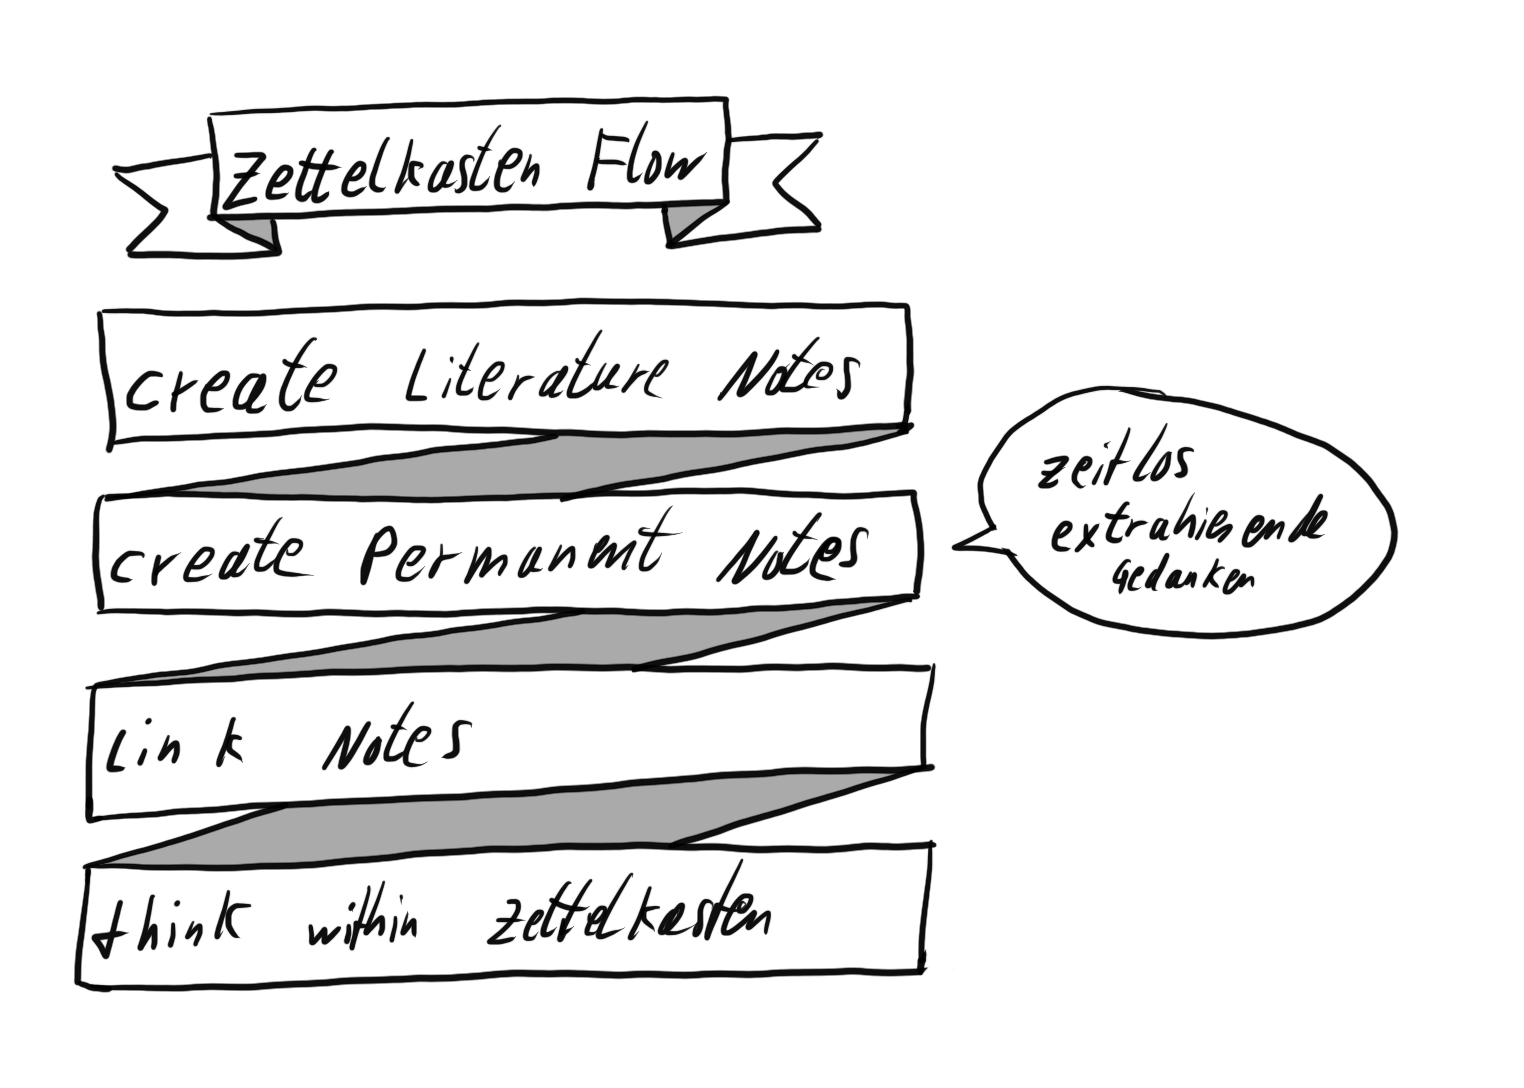 Zettelkasten Flow
create Literature Notes
create Permanent Notes
zeitlos
extrahierende
Gedanken
Link Notes
think within Zettelkasten